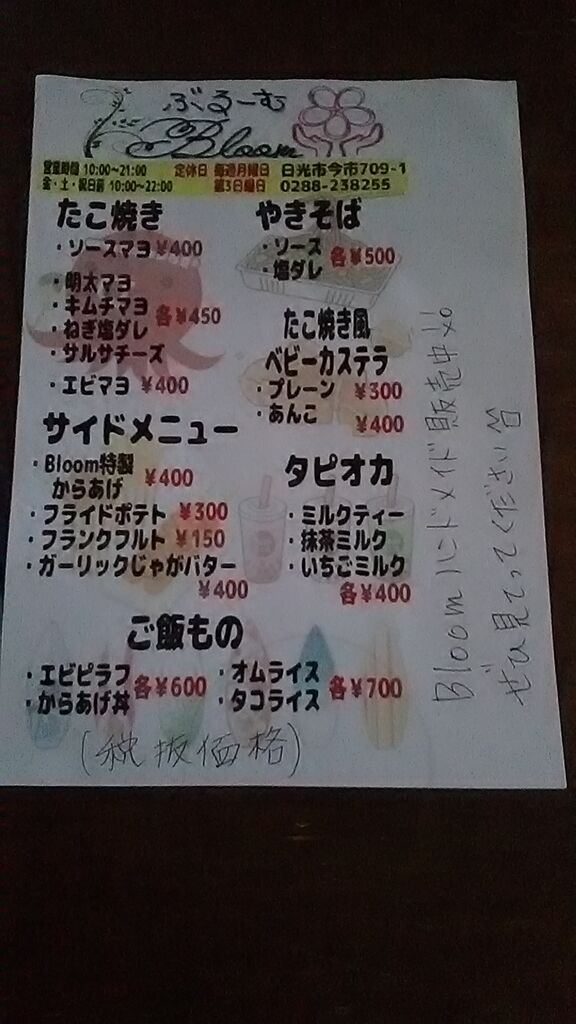 ぶるーむ
Bloom
営業時間 10:00~21:00 定休日 毎週月曜日 日光市今市709-1
金・土・祝日前 10:00~22:00 第3日曜日 0288-238255
たこ焼き
・ソースマヨ ¥400
・明太マヨ
・キムチマヨ
・ねぎ塩ダレ 各¥450
・サルサチーズ
・エビマヨ ¥400
やきそば
・ソース
・塩ダレ 各¥500
たこ焼き風
ベビーカステラ
・プレーン ¥300
・あんこ ¥400
サイドメニュー
・Bloom特製
からあげ ¥400
・フライドポテト ¥300
・フランクフルト ¥150
・ガーリックじゃがバター
¥400
タピオカ
・ミルクティー
・抹茶ミルク
・いちごミルク
各¥400
ご飯もの
・エビピラフ
・からあげ丼 各¥600
・オムライス
・タコライス 各¥700
(税抜価格)
Bloomハンドメイド販売中!!
ぜひ見てってください